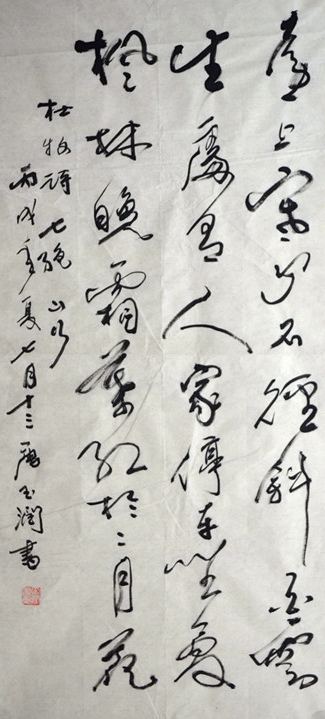 遠上寒山石徑斜白雲
生處有人家停車坐愛
楓林晚霜葉紅於二月花
杜牧詩七絕山行
丙戌年夏七月十三 玉潤書